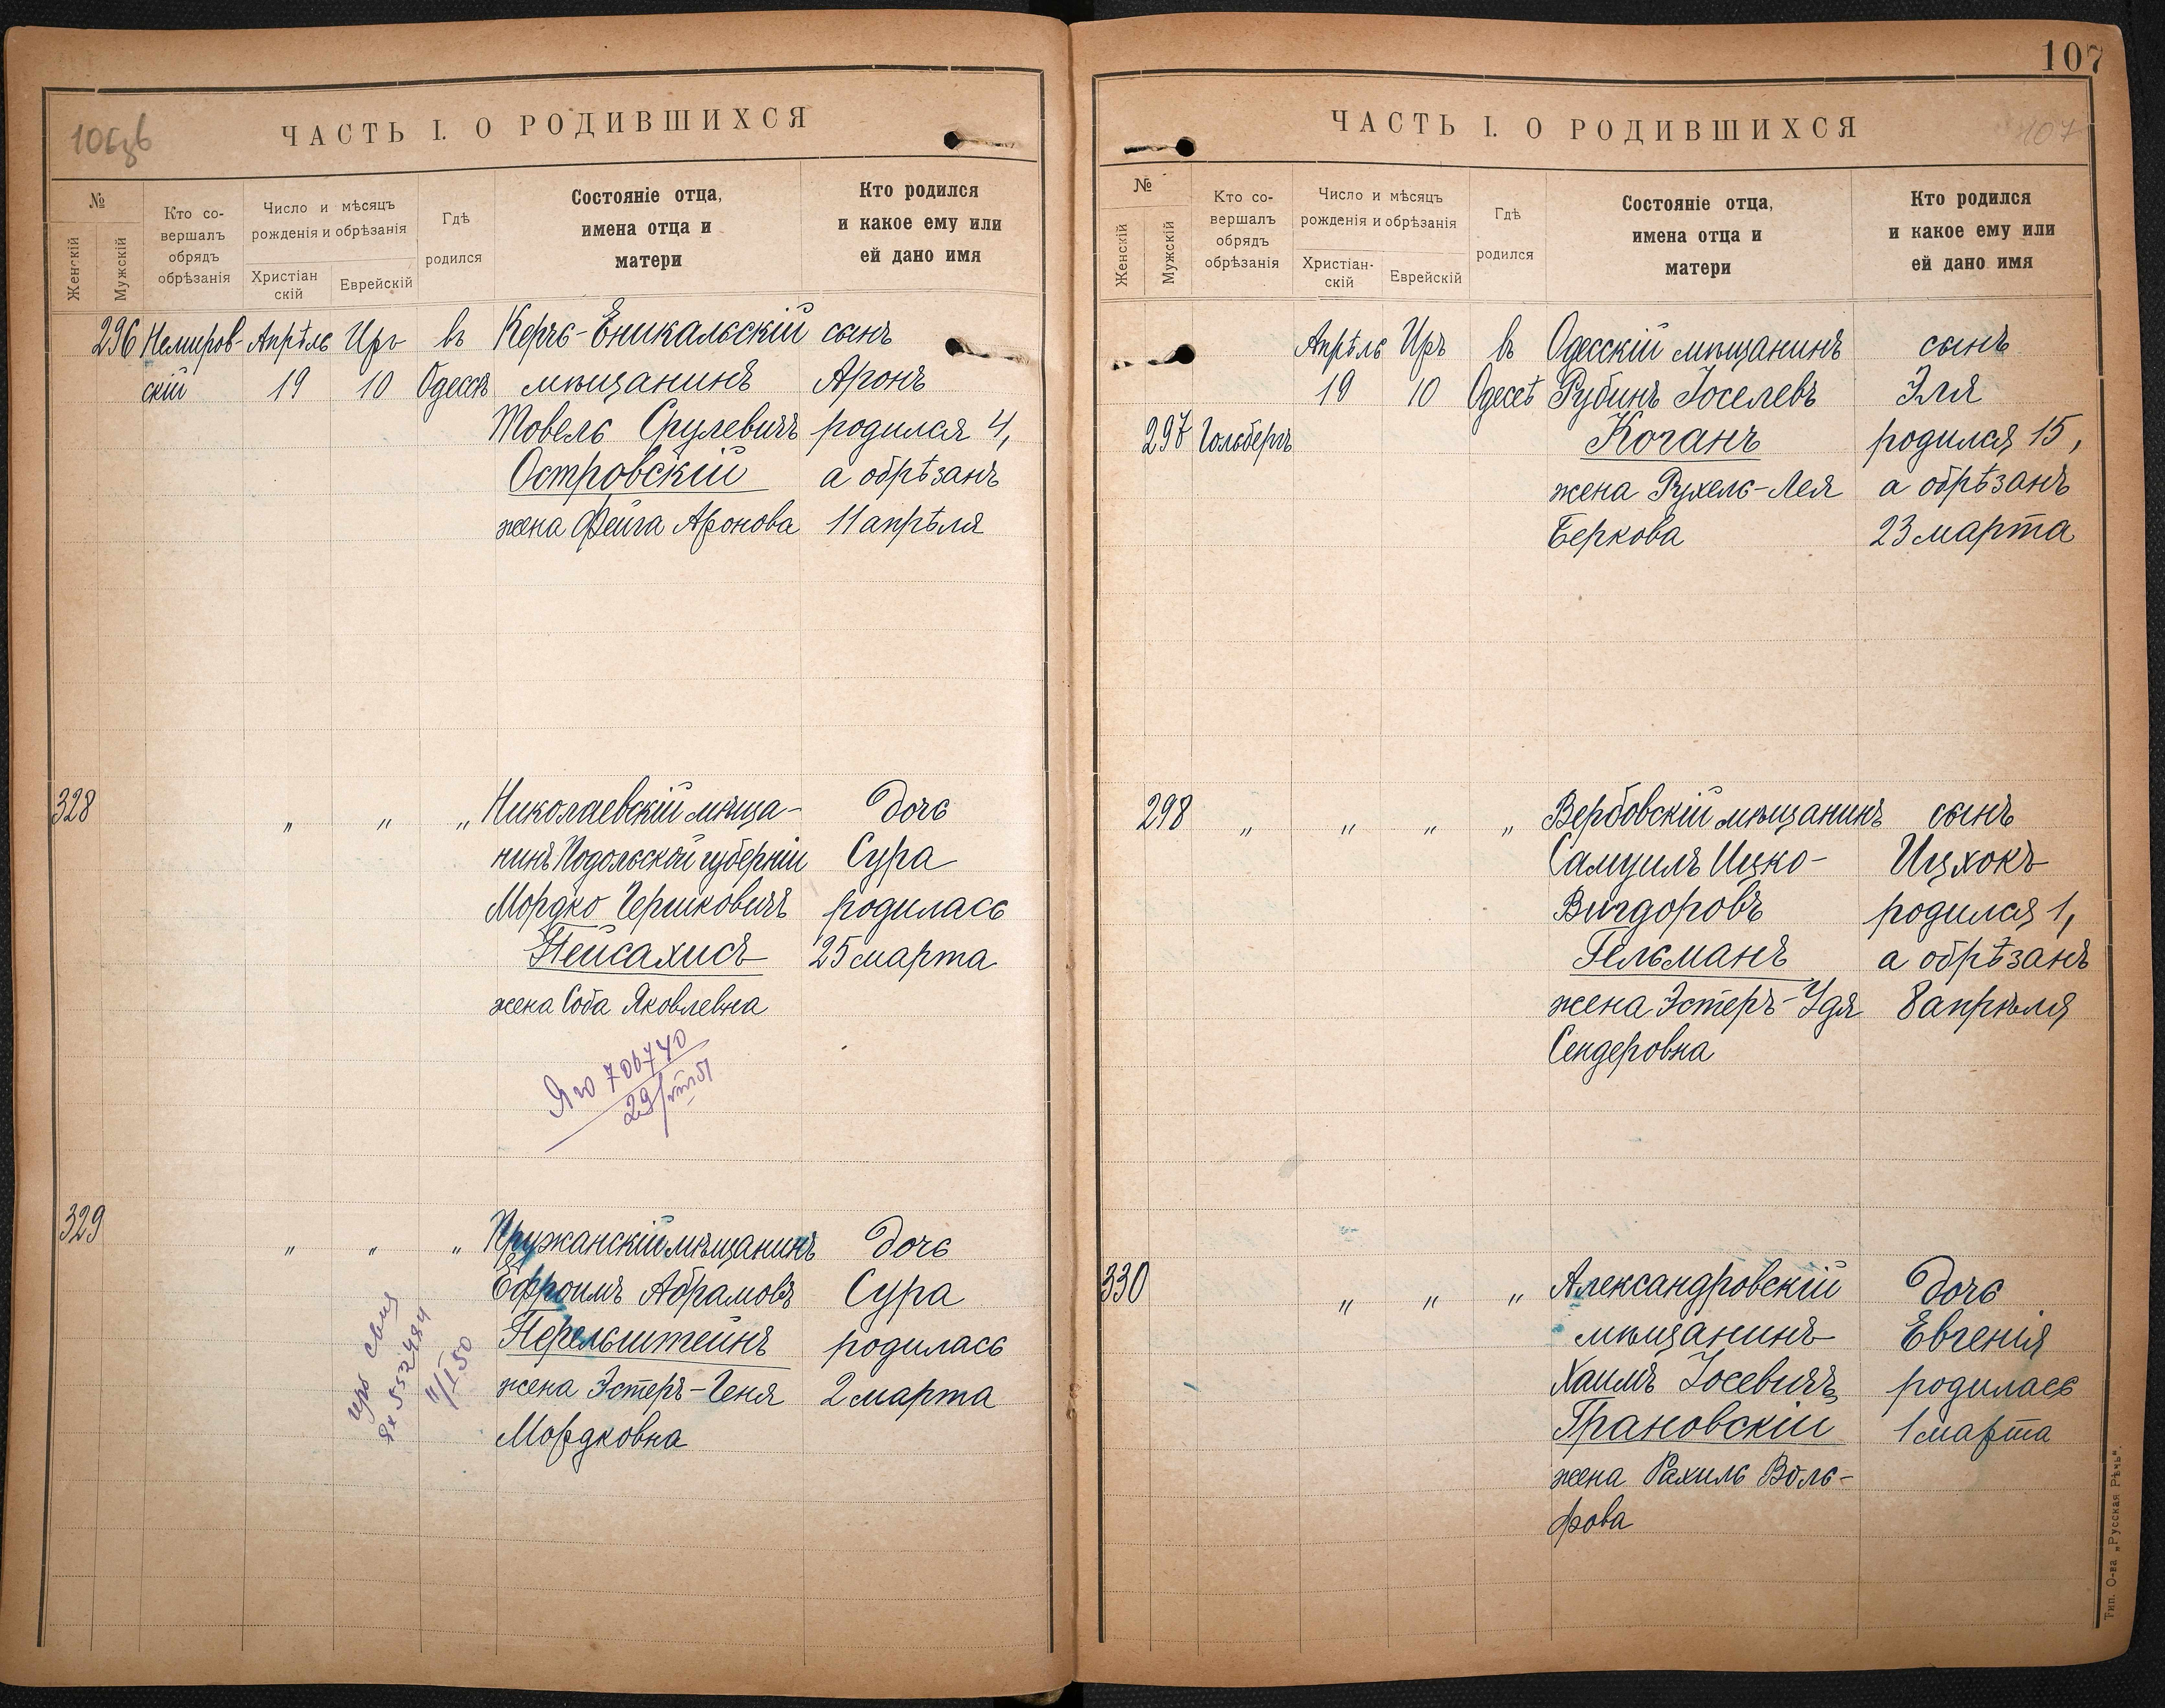 106зв
ЧАСТЬ I. О РОДИВШИХСЯ
№
Женскій
Мужскій
Кто со-
вершалъ
обрядъ
обрѣзанія
Число и мѣсяцъ
рожденія и обрѣзанія
Христіан
скій
Еврейскій
Гдѣ
родился
Состояніе отца,
имена отца и
матери
Кто родился
и какое ему или
ей дано имя
296 Немиров- Апрѣль Иръ въ Керчь-Еникальскій сынъ
скій 19 10 Одессѣ мѣщанинъ Аронъ
Товель Срулевичъ родился 4,
Островскій а обрѣзанъ
жена Фейга Аронова 11 апрѣля
328 „ „ „ Николаевскій мѣща- дочь
нинъ Подольской губерніи Сура
Мордко Гершковичъ родилась
Пейсахисъ 25 марта
жена Соба Яковлевна
706740
29/VIII 51
329 „ „ „ Пружанскій мѣщанинъ дочь
Ефроимъ Абрамовъ Сура
Перельштейнъ родилась
жена Эстеръ-Геня 2 марта
Мордковна
552484
11/I 50
107
ЧАСТЬ I. О РОДИВШИХСЯ
107
№
Женскій
Мужскій
Кто со-
вершалъ
обрядъ
обрѣзанія
Число и мѣсяцъ
рожденія и обрѣзанія
Христіан-
скій
Еврейскій
Гдѣ
родился
Состояніе отца,
имена отца и
матери
Кто родился
и какое ему или
ей дано имя
Апрѣль Иръ въ Одесскій мѣщанинъ сынъ
19 10 Одессѣ Рубинъ Іоселевъ Эля
297 Гольбергъ Коганъ родился 15,
жена Рухель-Лея а обрѣзанъ
Беркова 23 марта
298 „ „ „ „ Вербовскій мѣщанинъ сынъ
Самуилъ Ицко- Ицхокъ
Вигдоровъ родился 1,
Гельманъ а обрѣзанъ
жена Эстеръ-Удя 8 апрѣля
Сендеровна
330 „ „ „ Александровскій дочь
мѣщанинъ Евгенія
Хаимъ Іосевичъ родилась
Грановскій 1 марта
жена Рахиль Воль-
фова
Тип. О-ва „Русская Рѣчь".